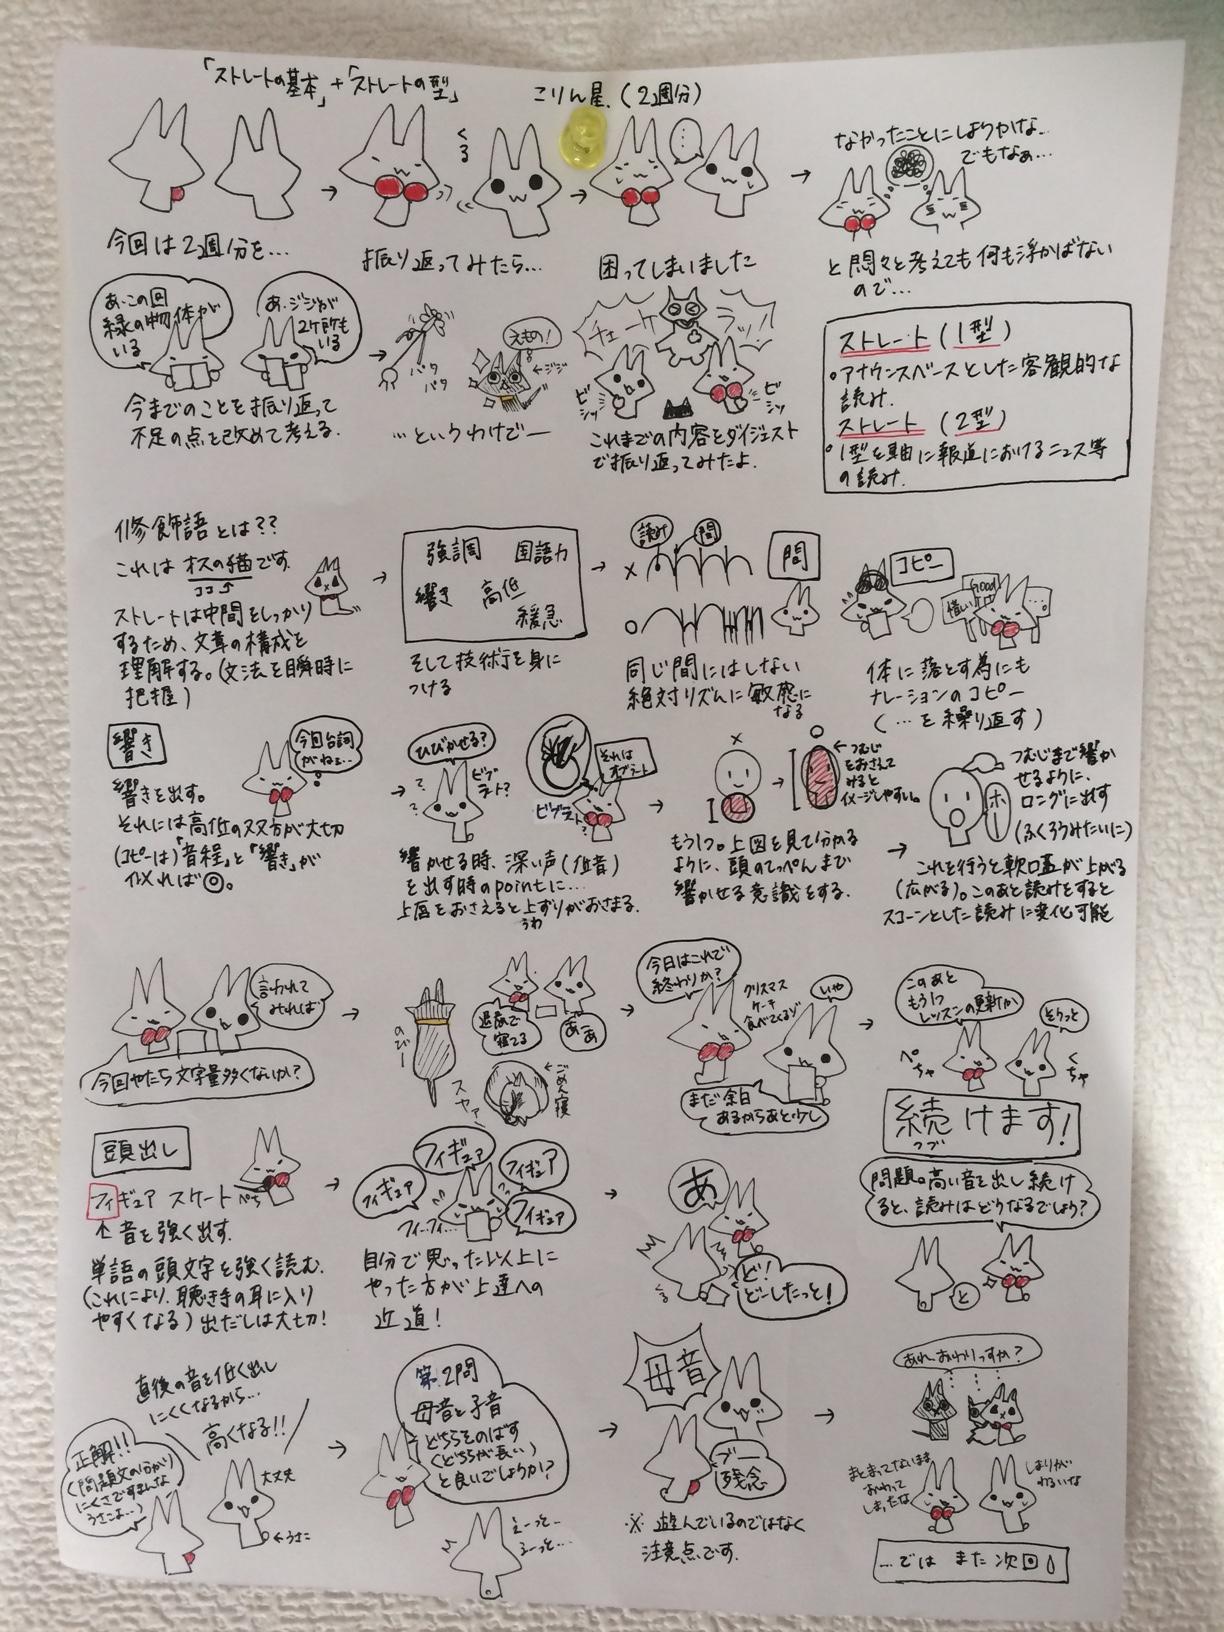 「ストレートの基本」+「ストレートの型」
こりん星.(2週分)
今回は2週分を…
くる
振り返ってみたら…
…
困ってしまいました
なかったことにしようかな…
でもなぁ…
と悶々と考えても何も浮かばない
ので…
あ、この回
緑の物体が
いる
あ、ジジが
2ヶ所も
いる
今までのことを振り返って
不足の点を改めて考える.
パタ
パタ
えもの!
←ジジ
…というわけで―
チェーケ
ラッ
ビシッ
ビシッ
これまでの内容をダイジェスト
で振り返ってみたよ.
ストレート(1型)
○アナウンスベースとした客観的な
読み.
ストレート(2型)
○1型を軸に報道におけるニュース等
の読み.
修飾語とは??
これはオスの猫です.
ココ
ストレートは中間をしっかり
するため、文章の構成を
理解する。(文法を瞬時に
把握)
強調 国語力
響き 高低
緩急
そして技術を身に
つける
読み
間
×
○
間
同じ間にはしない
絶対リズムに敏感に
なる
コピー
good
体に落とす為にも
ナレーションのコピー
(…を繰り返す)
響き
今回台詞
がねぇ…
響きを出す。
それには高低の双方が大切
(コピーは)「音程」と「響き」が
似れば◎。
ひびかせる?
ビブ
ラート?
それは
オブラート
ビブラート?
響かせる時、深い声(低音)
を出す時のpointに…
上唇をおさえると上ずりがおさまる.
うわ
×
○
←つむじ
をおさえて
みると
イメージしやすい。
もう1つ。上図を見て分かる
ように、頭のてっぺんまで
響かせる意識をする.
ホー
つむじまで響か
せるように、
ロングに出す
(ふくろうみたいに)
これを行うと軟口蓋が上がる
(広がる)。このあと読みをすると
スコーンとした読みに変化可能
言われて
みれば
今回やたら文字量多くないか?
のびー
退屈で
寝てる
ああ
スヤァ
←ごめん寝
今日はこれで
終わりか?
クリスマス
ケーキ
食べてくるゾ
いや
まだ余白
あるからあと少し
このあと
もう1つ
レッスンの更新か
そうっと
ぺちゃ
くちゃ
続けます!
つづ
頭出し
フィギュア スケート
ぺち
↑音を強く出す.
単語の頭文字を強く読む.
(これにより、聴き手の耳に入り
やすくなる)出だしは大切!
フィギュア
フィギュア
フィギュア
フィギュア
フィーフィ…
自分で思った以上に
やった方が上達への
近道!
あ
ど!
どーしたっと!
問題。高い音を出し続け
ると、読みはどうなるでしょう?
と
直後の音を低く出し
にくくなるから…
高くなる!!
正解!!
(問題文の分かり
にくさですまんな
うさこよ…)
大丈夫
←うさこ
第2問
母音と子音
どちらをのばす
(どちらが長い)
と良いでしょうか?
えーっと…
えーっと…
母音
ブー
残念
※遊んでいるのではなく
注意点です.
あれ、おわりっすか?
まとまってないまま
おわって
しまったな
しまりが
わるいな
…では また次回